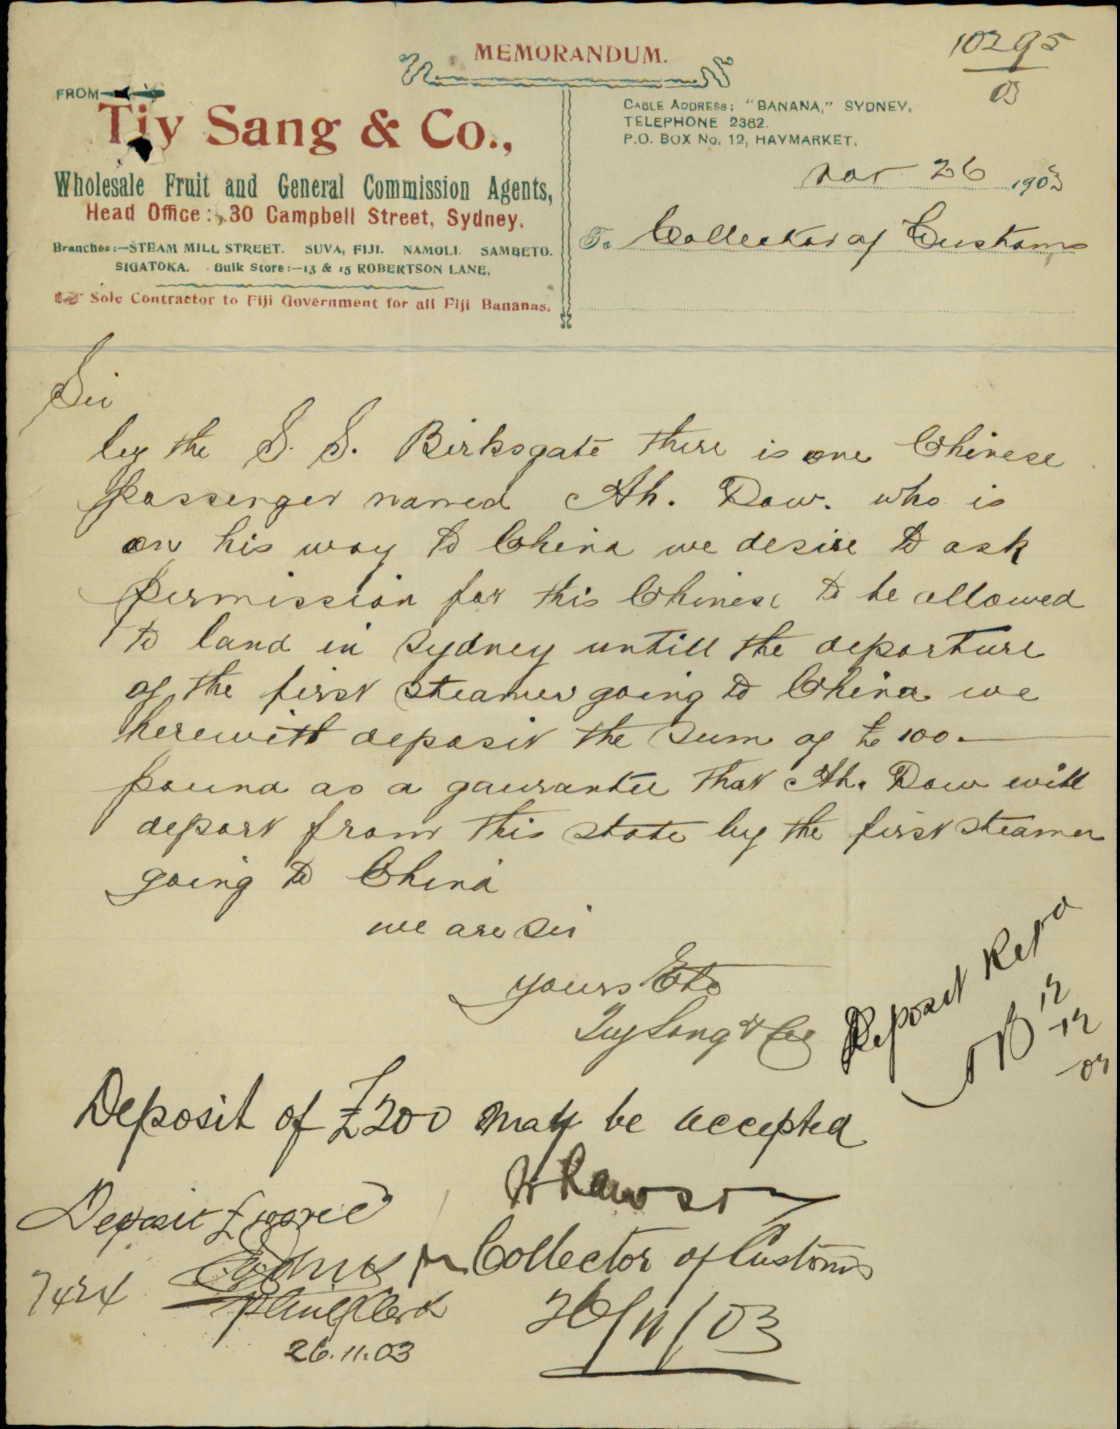 MEMORANDUM.
10295
03
FROM
Tiy Sang & Co.,
Wholesale Fruit and General Commission Agents,
Head Office: 30 Campbell Street, Sydney.
Branches:—STEAM MILL STREET. SUVA, FIJI. NAMOLI. SAMBETO.
SIGATOKA. Bulk Store:—13 & 15 ROBERTSON LANE.
Sole Contractor to Fiji Government for all Fiji Bananas.
CABLE ADDRESS: "BANANA," SYDNEY.
TELEPHONE 2382.
P.O. BOX No. 12, HAYMARKET.
Nov 26 1903
To Collector of Customs
Sir
by the S. S. Birksgate there is one Chinese
passenger named Ah. Dow. who is
on his way to China we desire to ask
permission for this Chinese to be allowed
to land in Sydney untill the departure
of the first steamer going to China we
herewith deposit the sum of £100.—
pound as a gaurantee that Ah. Dow will
depart from this state by the first steamer
going to China
we are Sir
yours Etc
Tiy Sang & Co
Deposit
12
12
03
Deposit of £200 may be accepted
Deposit £
Collector of Customs
7424
Clerk
26.11.03
26/11/03